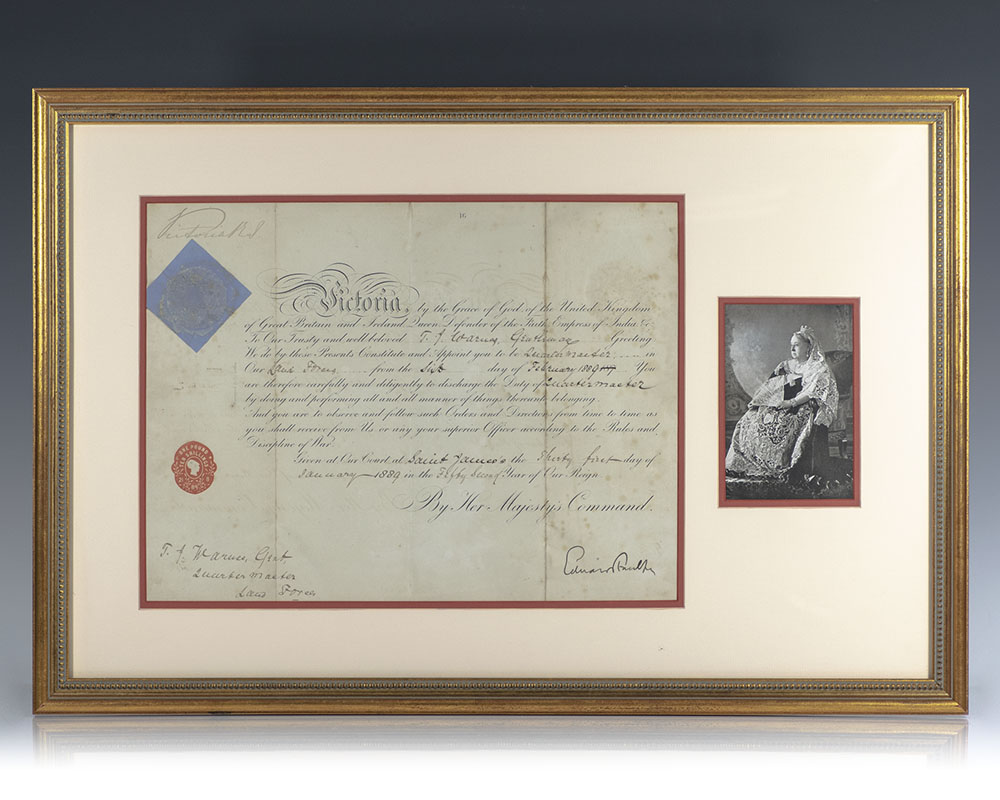 Victoria R.I.
Victoria, by the Grace of God, of the United Kingdom
of Great Britain and Ireland, Queen, Defender of the Faith, Empress of India &c
To Our Trusty and well beloved T. J. Gentleman Greeting
We do by these Presents Constitute and Appoint you to be Quartermaster in
Our Land Forces from the day of February 1889 You
are therefore carefully and diligently to discharge the Duty of Quartermaster
by doing and performing all and all manner of things thereunto belonging.
And you are to observe and follow such Orders and Directions from time to time as
you shall receive from Us or any your superior Officer according to the Rules and
Discipline of War.
Given at Our Court, at Saint James's the Thirty first day of
January 1889 in the Fifty Second Year of Our Reign
By Her Majesty's Command.
T. J. Gent
Quartermaster
Land Forces